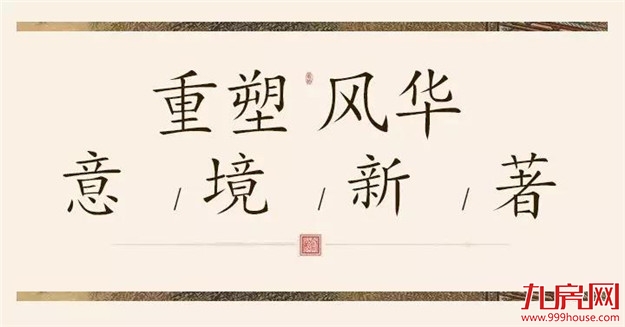 重塑 风华
意 / 境 / 新 / 著
九房网
www.999house.com